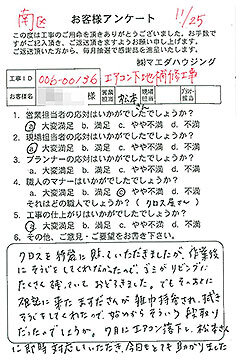 南区
11/25
お客様アンケート
この度は工事のご用命を頂きありがとうございました。お手数ですがご記入頂き、ご返送頂きますようお願い申し上げます。
ご返送頂いた方から、毎月抽選で感謝品を進呈いたします。
㈱マエダハウジング
工事ID 006-00196 エアコン下地補修工事
お客様名 様 営業担当 松本さん 現場担当 プラン担当
1. 営業担当者の応対はいかがでしたでしょうか?
a. 大変満足 b. 満足 c. やや不満 d. 不満
2. 現場担当者の応対はいかがでしたでしょうか?
a. 大変満足 b. 満足 c. やや不満 d. 不満
3. プランナーの応対はいかがでしたでしょうか?
a. 大変満足 b. 満足 c. やや不満 d. 不満
4. 職人のマナーはいかがでしたでしょうか?
a. 大変満足 b. 満足 c. やや不満 d. 不満
それはどの職人でしょうか?( クロス屋さん )
5. 工事の仕上がりはいかがでしたでしょうか?
a. 大変満足 b. 満足 c. やや不満 d. 不満
6. その他、ご意見・ご要望をお書き下さい。
クロスを綺麗に貼っていただきましたが、作業後
にそうじをしてくれなかったので、ゴミがリビングに
たくさん残っていておどろきました。でもそのあとに
確認に来たますださんが雑巾持参され、拭き
そうじをしてくれたので、なのかそういう段取り
だったのでしょうか。7月にエアコン落下し、松本さん
に即時対応していただき、今日もとても助かりました